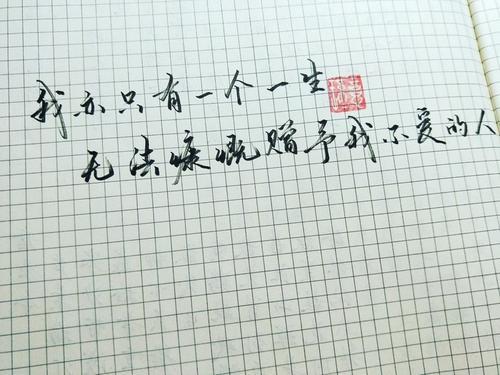 我亦只有一个一生
无法慷慨赠予我不爱的人